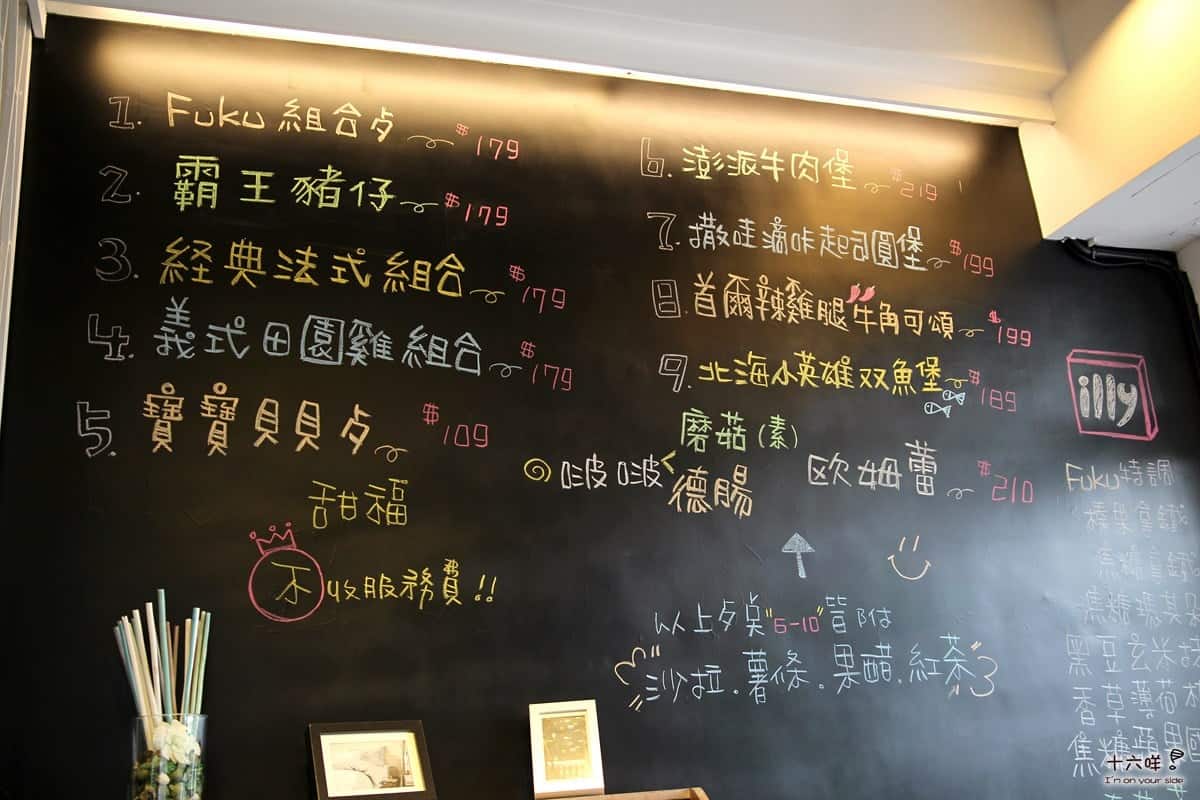 1. Fuku 組合歺 $179
2. 霸王豬仔 $179
3. 経典法式組合 $179
4. 義式田園雞組合 $179
5. 寶寶貝貝歺 $109
甜福
不收服務費!!
6. 澎派牛肉堡 $219
7. 撒哇滴咔起司圓堡 $199
8. 首爾辣雞腿牛角可頌 $199
9. 北海小英雄双魚堡 $189
磨菇(素)
啵啵 德腸 欧姆蕾 $210
以上歺奌"6-10"皆附
沙拉.薯條.果醋.紅茶
illy
Fuku特調
榛果拿鐵
焦糖拿鐵
焦糖瑪其
黑豆玄米
香草薄荷
焦糖蘋果
十六咩
I'm on your side